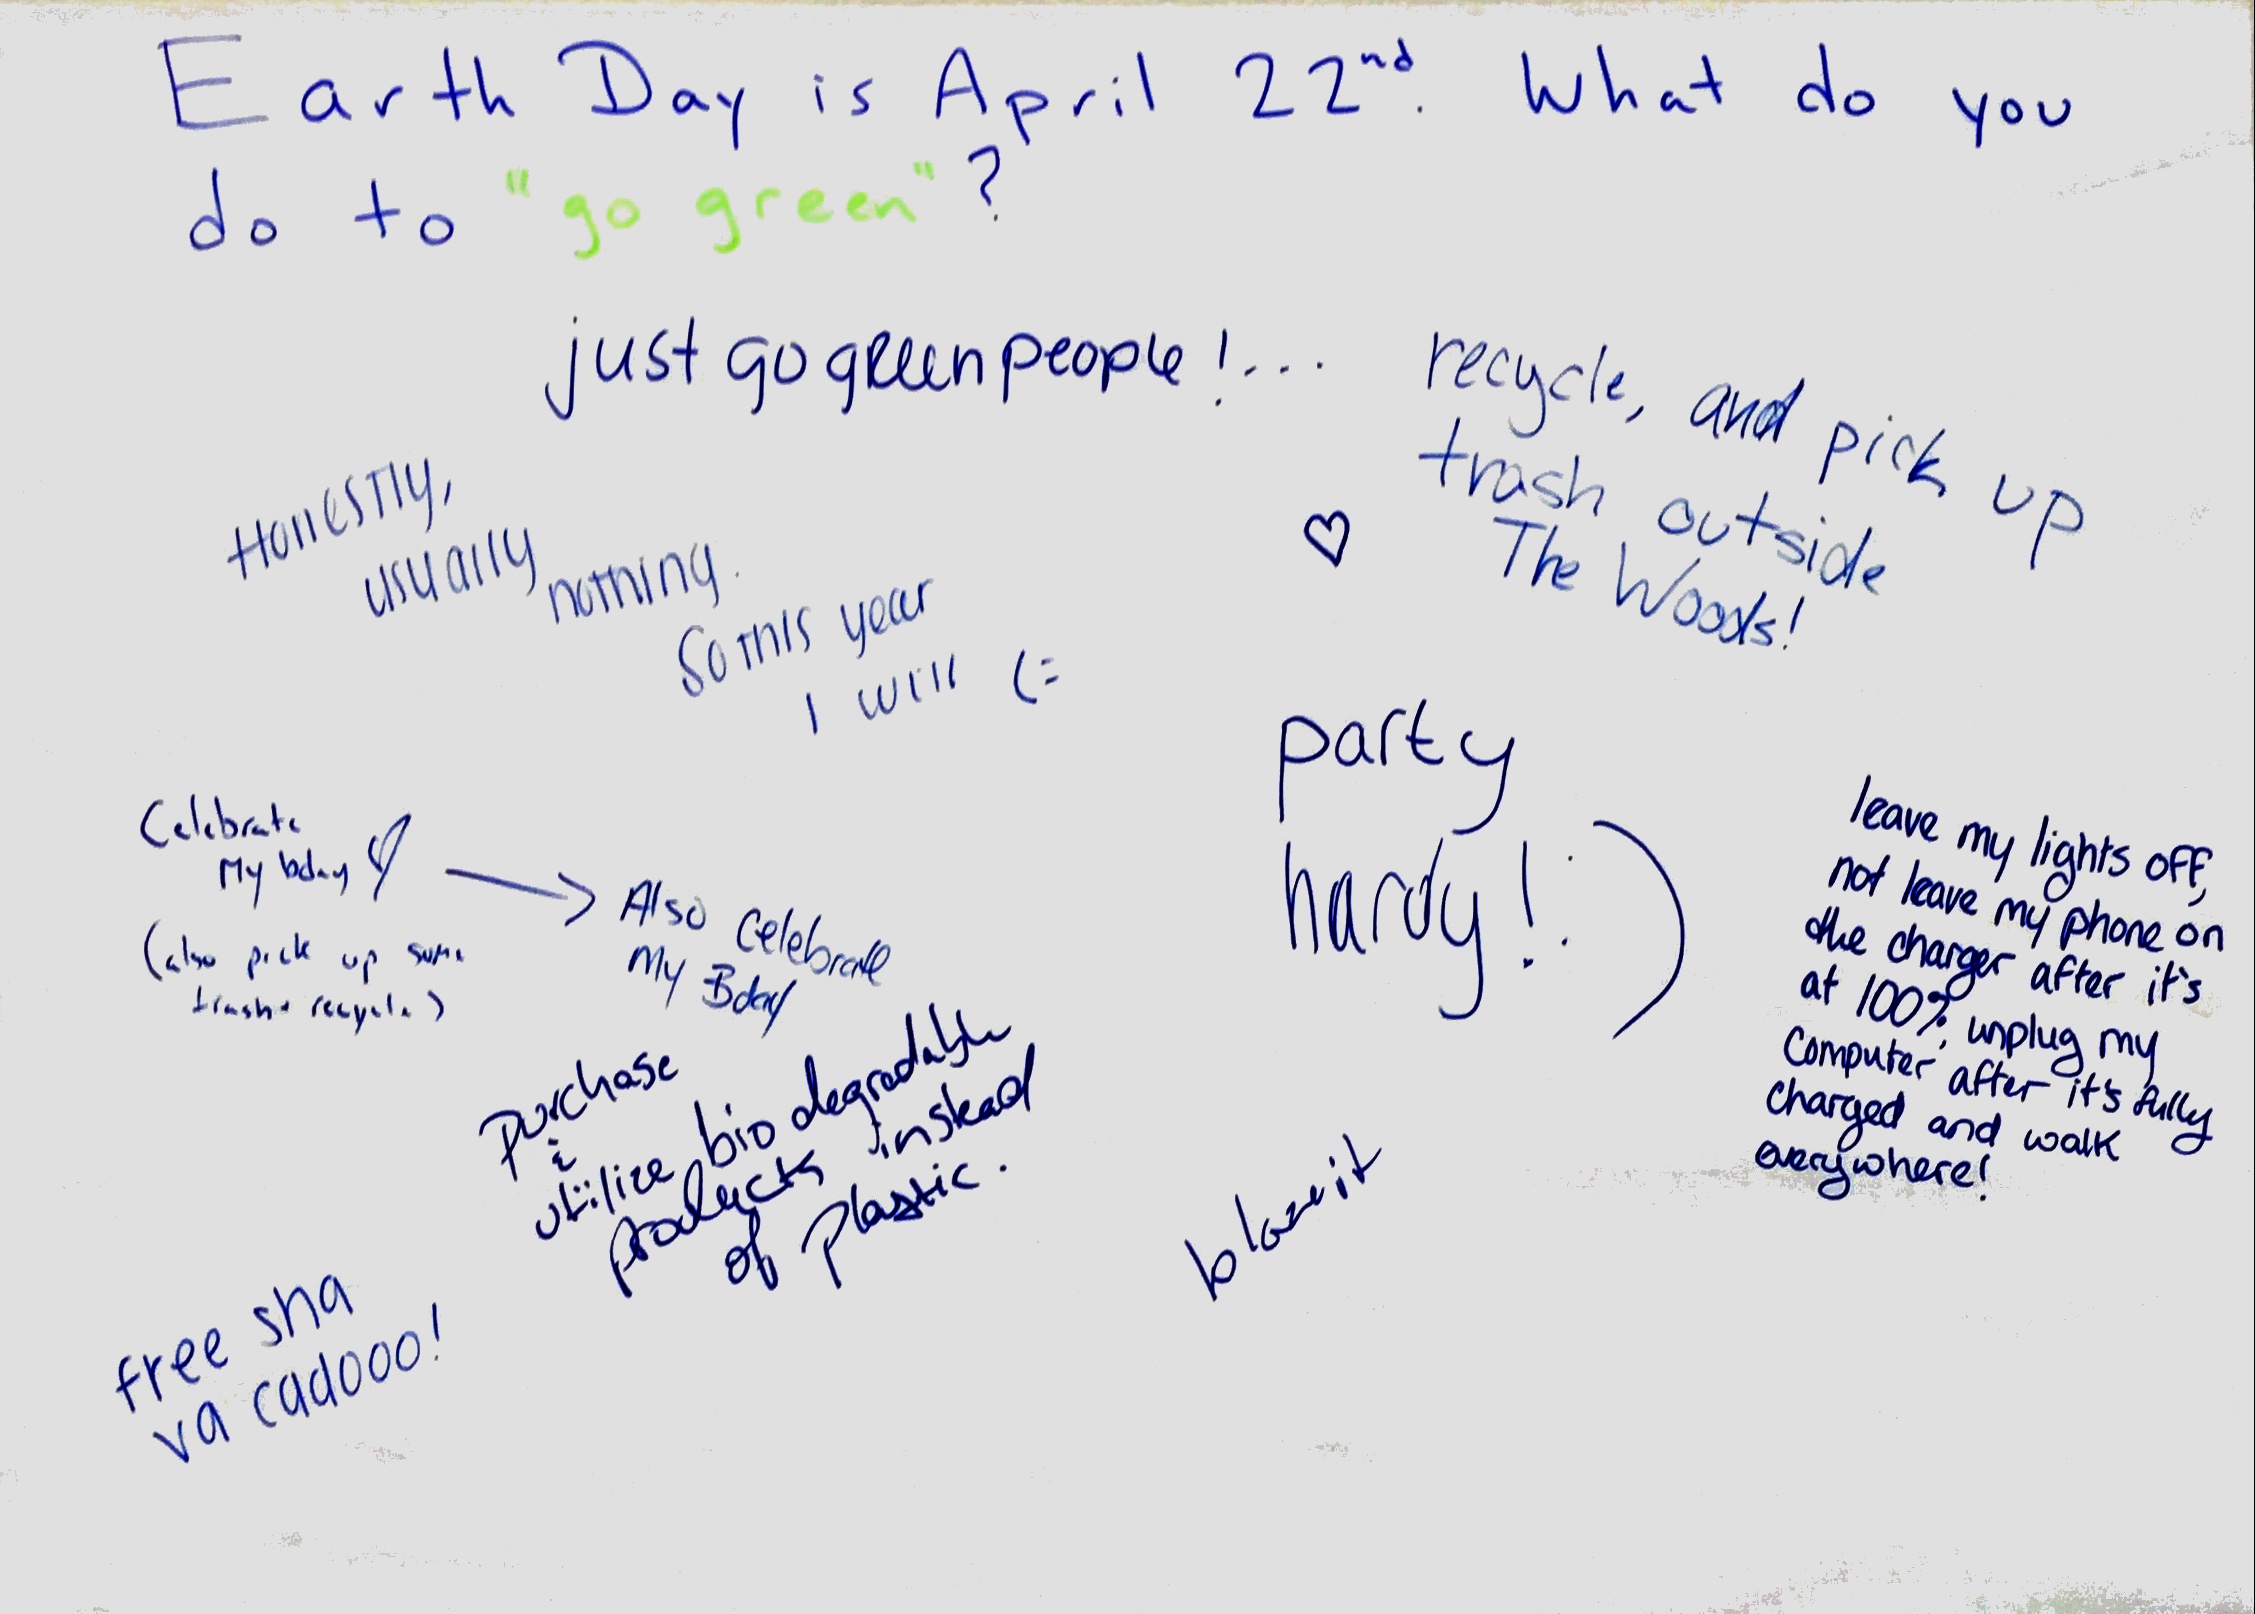 Earth Day is April 22nd. What do you
do to "go green"?
just go green people!...
recycle, and pick up
trash outside
The Woods!
Honestly,
usually
nothing.
So this year
I will (=
party
hardy! :)
Celebrate
My bday
(also pick up some
trash + recycle)
Also Celebrate
My Bday
leave my lights off,
not leave my phone on
the charger after it's
at 100%, unplug my
computer after it's fully
charged and walk
everywhere!
purchase
&
utilize biodegradable
products instead
of plastic.
free sha
va cadooo!